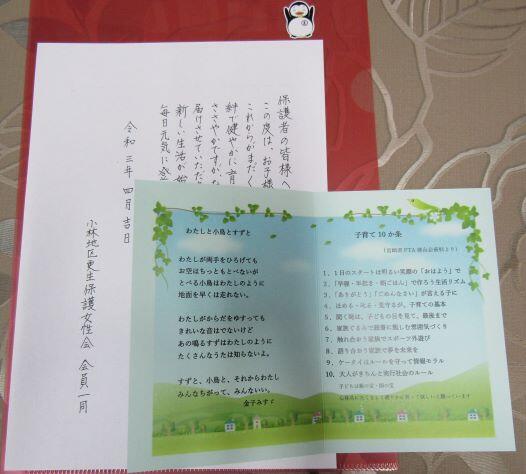 保護者の皆様へ
この度は、お子様
これからがまだ
絆で健やかに育
ささやかですが、
届けさせていただ
新しい生活が始
毎日元気に登
令和三年四月吉日
小林地区更生保護女性会 会員一同
わたしと小鳥とすずと
わたしが両手をひろげても
お空はちっともとべないが
とべる小鳥はわたしのように
地面を早くは走れない。
わたしがからだをゆすっても
きれいな音はでないけど
あの鳴るすずはわたしのように
たくさんなうたは知らないよ。
すずと、小鳥と、それからわたし
みんなちがって、みんないい。
金子みすゞ
子育て10か条
(宮崎県PTA連合会資料より)
1、1日のスタートは明るい笑顔の「おはよう」で
2、「早寝・早起き・朝ごはん」で作ろう生活リズム
3、「ありがとう」「ごめんなさい」が言える子に
4、ほめる・叱る・見守るが、子育ての基本
5、聞く時は、子どもの目を見て、最後まで
6、家族ぐるみで読書に親しむ雰囲気づくり
7、触れ合おう家族でスポーツ外遊び
8、語り合おう家族で夢を未来を
9、ケータイはルールを守って情報モラル
10、大人がきちんと実行社会のルール
子どもは親の宝・国の宝